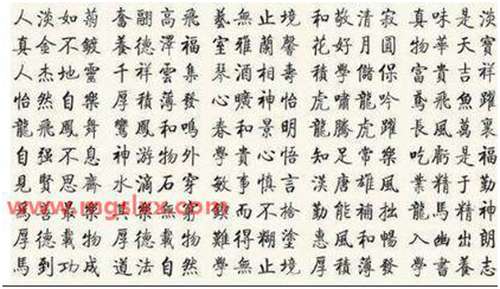 人淡如菊 奮翮高飛 藝無止境 和敬清寂 真味是淡
真金不鍍 養德澤福 室雅蘭馨 花好月圓 物華天寶
人杰地靈 千祥雲集 富貴吉祥
怡然自樂 厚積薄發 心曠神怡 虎嘯龍吟 鳶飛魚躍
龍飛鳳舞 鸞鳳和鳴 春和景明 龍騰虎躍 長風萬裏
自强不息 神游物外 知足常樂 吃虧是福
見賢思齋 水滴石穿 敏事慎言 漢唐雄風 業精于勤
鍥而不捨 勤能補拙 龍馬精神
厚德載物 厚德載物 難得糊塗 惠風和暢 入幽出朗
馬到功成 道法自然 學無止境 厚積薄發 學書養志